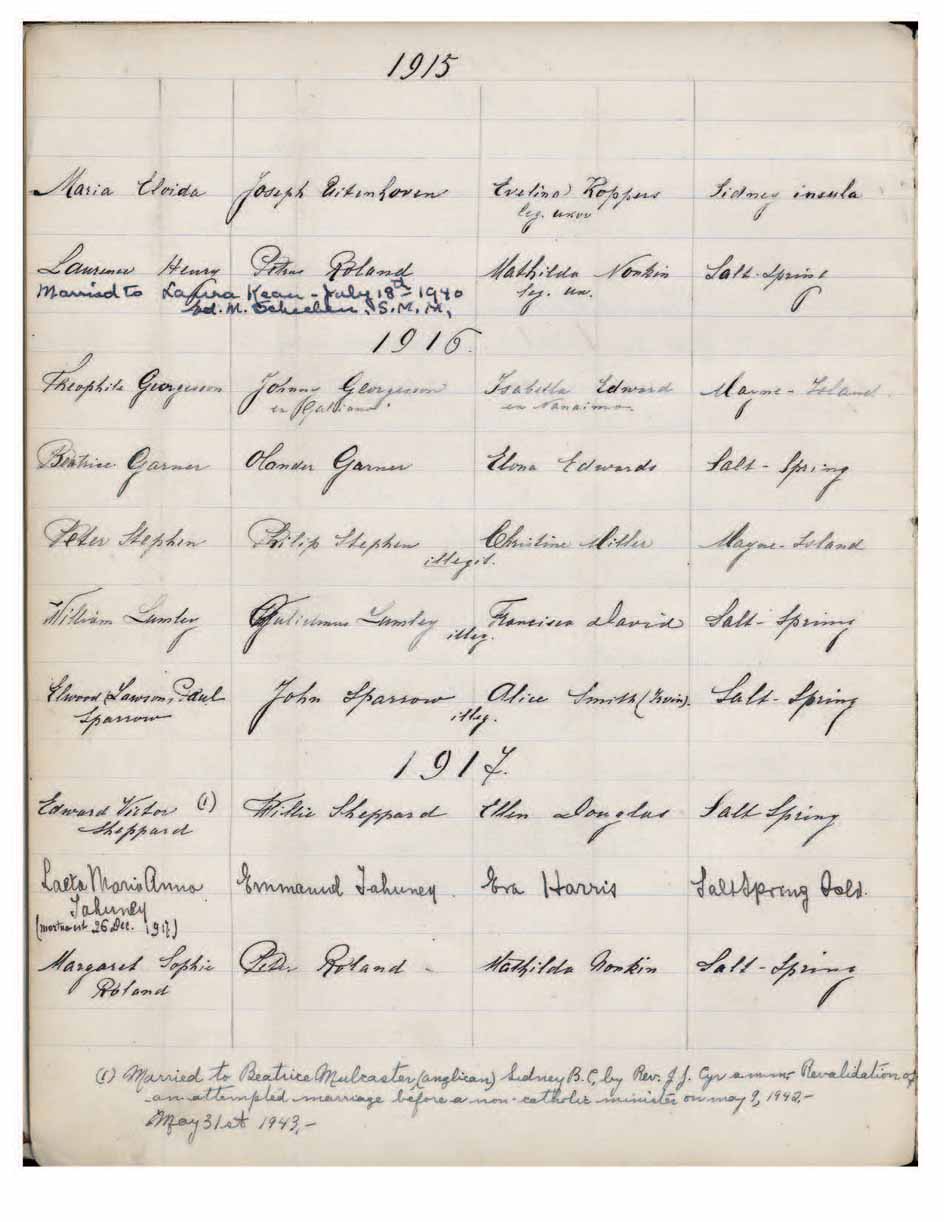 1915
Maria Cloida Joseph Eitenhoven Evelina Koppers Sidney insula
leg. uxor
Laurence Henry Petrus Roland Mathilda Nonkin Salt-Spring
leg. ux.
Married to Laura Kean - July 18th 1940
M. Schielen, S.M.M.
1916.
Theophile Georgeson Johnny Georgeson Isabella Edward Mayne-Island
ex Galiano ex Nanaimo
Beatrice Garner Olander Garner Elona Edwards Salt-Spring
Peter Stephen Philip Stephen Christine Miller Mayne-Island
illegit.
William Lumley Gulielmus Lumley Francisca David Salt-Spring
illeg.
Elwood, Lawson, Paul John Sparrow Alice Smith (Irvin). Salt-Spring
Sparrow illeg.
1917.
Edward Victor (1) Willie Sheppard Ellen Douglas Salt Spring
Sheppard
Laeta Maria Anna Emmanuel Tahuney. Eva Harris Salt Spring Isld.
Tahuney
(mortua est 26 Dec. 1917)
Margaret Sophie Peter Roland - Mathilda Nonkin Salt-Spring
Roland
(1) Married to Beatrice Mulcaster (anglican) Sidney B.C, by Rev. J.J. Cyr s.m.m. Revalidation of
an attempted marriage before a non-catholic minister on may 9, 1942,-
May 31st 1943,-